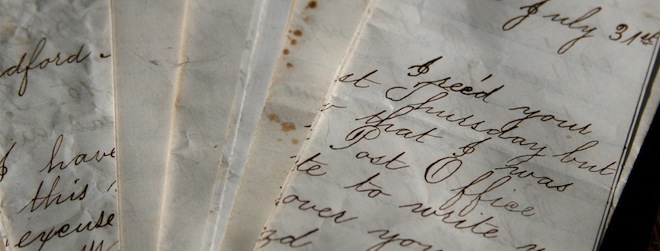 July 31st
I rec'd your
st Thursday but
that I was
Post Office
te to write
over you
dford
I have
this
excuse